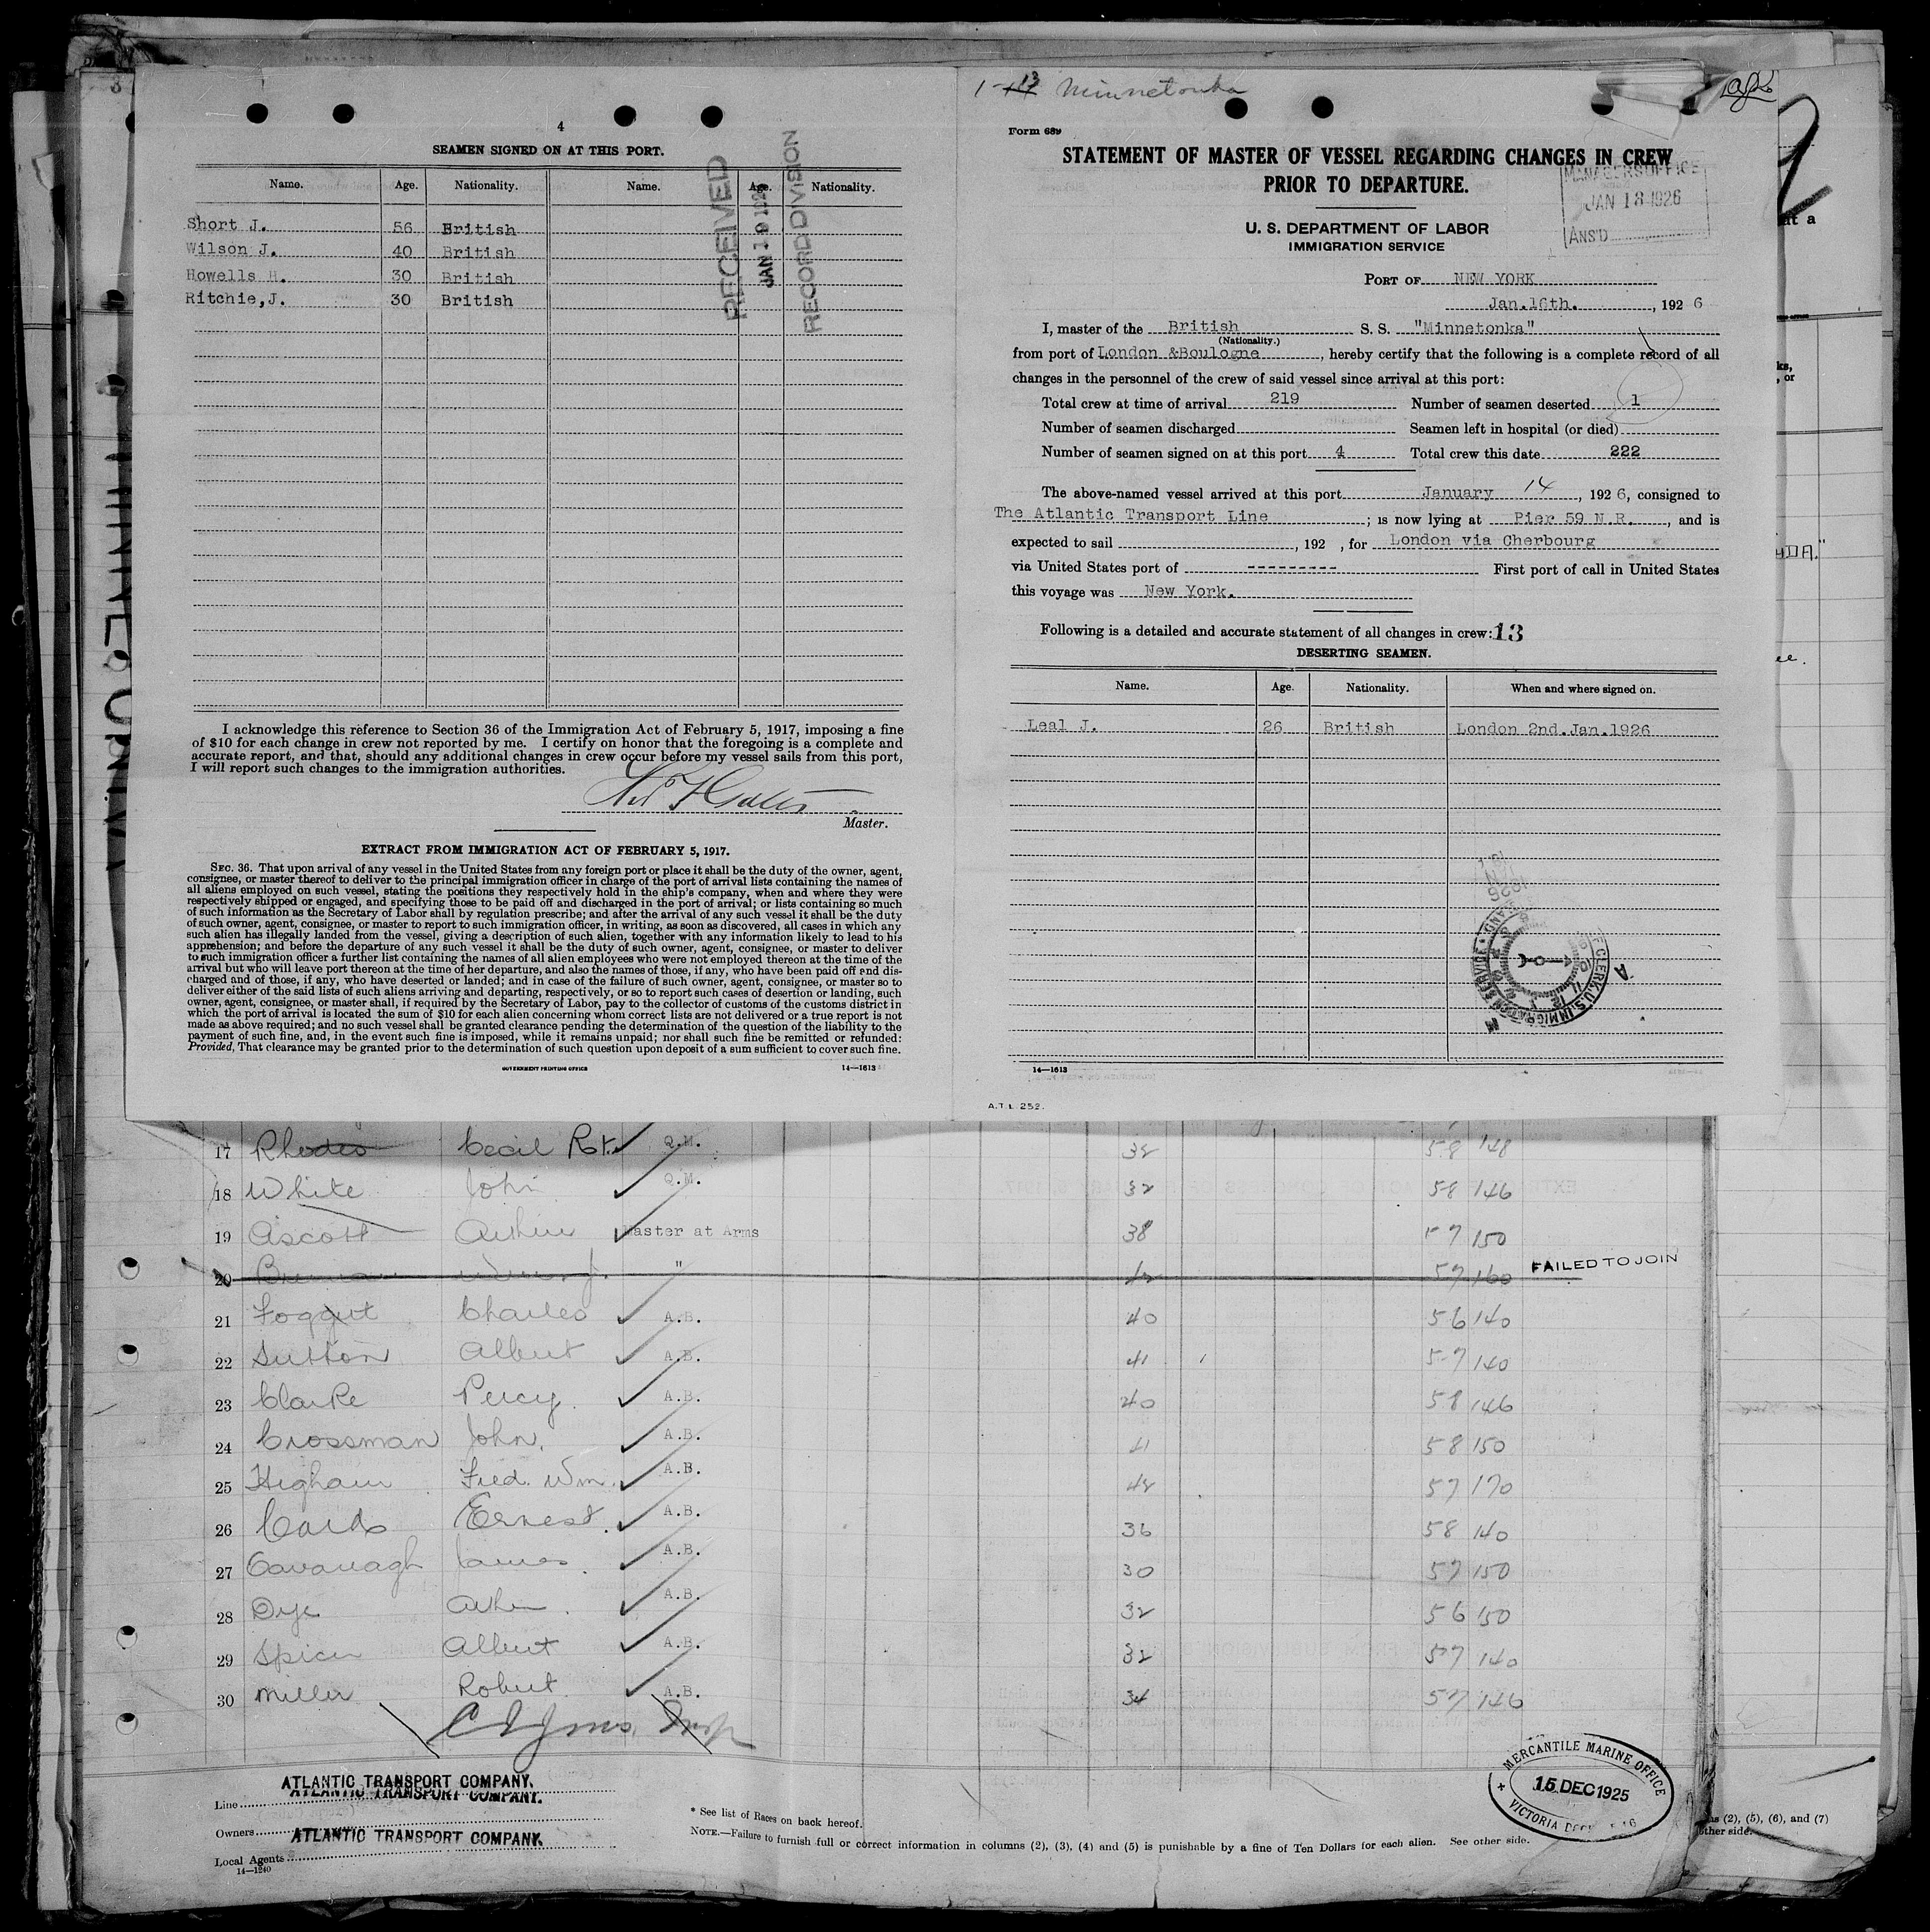 4
SEAMEN SIGNED ON AT THIS PORT.
Name. Age. Nationality. Name. Age. Nationality.
Short J. 56 British
Wilson J. 40 British
Howells H. 30 British
Ritchie, J. 30 British
RECEIVED
JAN 19 1926
RECORD DIVISION
I acknowledge this reference to Section 36 of the Immigration Act of February 5, 1917, imposing a fine
of $10 for each change in crew not reported by me. I certify on honor that the foregoing is a complete and
accurate report, and that, should any additional changes in crew occur before my vessel sails from this port,
I will report such changes to the immigration authorities.
Master.
EXTRACT FROM IMMIGRATION ACT OF FEBRUARY 5, 1917.
SEC. 36. That upon arrival of any vessel in the United States from any foreign port or place it shall be the duty of the owner, agent,
consignee, or master thereof to deliver to the principal immigration officer in charge of the port of arrival lists containing the names of
all aliens employed on such vessel, stating the positions they respectively hold in the ship's company, when and where they were
respectively shipped or engaged, and specifying those to be paid off and discharged in the port of arrival; or lists containing so much
of such information as the Secretary of Labor shall by regulation prescribe; and after the arrival of any such vessel it shall be the duty
of such owner, agent, consignee, or master to report to such immigration officer, in writing, as soon as discovered, all cases in which any
such alien has illegally landed from the vessel, giving a description of such alien, together with any information likely to lead to his
apprehension; and before the departure of any such vessel it shall be the duty of such owner, agent, consignee, or master to deliver
to such immigration officer a further list containing the names of all alien employees who were not employed thereon at the time of the
arrival but who will leave port thereon at the time of her departure, and also the names of those, if any, who have been paid off and dis-
charged and of those, if any, who have deserted or landed; and in case of the failure of such owner, agent, consignee, or master so to
deliver either of the said lists of such aliens arriving and departing, respectively, or so to report such cases of desertion or landing, such
owner, agent, consignee, or master shall, if required by the Secretary of Labor, pay to the collector of customs of the customs district in
which the port of arrival is located the sum of $10 for each alien concerning whom correct lists are not delivered or a true report is not
made as above required; and no such vessel shall be granted clearance pending the determination of the question of the liability to the
payment of such fine, and, in the event such fine is imposed, while it remains unpaid; nor shall such fine be remitted or refunded:
Provided, That clearance may be granted prior to the determination of such question upon deposit of a sum sufficient to cover such fine.
GOVERNMENT PRINTING OFFICE 14—1613
Minnetonka
Form 689
STATEMENT OF MASTER OF VESSEL REGARDING CHANGES IN CREW
PRIOR TO DEPARTURE.
MANAGERS OFFICE
JAN 18 1926
ANS'D
U. S. DEPARTMENT OF LABOR
IMMIGRATION SERVICE
PORT OF NEW YORK
Jan.16th. , 192 6
I, master of the British S. S. "Minnetonka"
(Nationality.)
from port of London &Boulogne , hereby certify that the following is a complete record of all
changes in the personnel of the crew of said vessel since arrival at this port:
Total crew at time of arrival 219 Number of seamen deserted 1
Number of seamen discharged Seamen left in hospital (or died)
Number of seamen signed on at this port 4 Total crew this date 222
The above-named vessel arrived at this port January 14 , 192 6, consigned to
The Atlantic Transport Line ; is now lying at Pier 59 N.R. , and is
expected to sail , 192 , for London via Cherbourg
via United States port of --------- First port of call in United States
this voyage was New York.
Following is a detailed and accurate statement of all changes in crew: 13
DESERTING SEAMEN.
Name. Age. Nationality. When and where signed on.
Leal J. 26 British London 2nd.Jan.1926
14—1613
A.T.L. 252.
17 Rhodes Cecil Rt. Q.M. 32 5-8 148
18 White John Q.M. 32 5-8 146
19 Ascott Arthur Master at Arms 38 5-7 150
20 " 5-7 160 FAILED TO JOIN
21 Foggit Charles A.B. 40 5-6 140
22 Sutton Albert A.B. 41 5-7 140
23 Clarke Percy A.B. 40 5-8 146
24 Crossman John. A.B. 41 5-8 150
25 Higham Fred. Wm. A.B. 42 5-7 170
26 Ernest A.B. 36 5-8 140
27 Cavanagh James A.B. 30 5-7 150
28 Dye Arthur A.B. 32 5-6 150
29 Spicer Albert A.B. 32 5-7 140
30 Miller Robert A.B. 34 5-7 146
Line ATLANTIC TRANSPORT COMPANY.
ATLANTIC TRANSPORT COMPANY.
Owners
ATLANTIC TRANSPORT COMPANY.
Local Agents
14—1240
* See list of Races on back hereof.
NOTE.—Failure to furnish full or correct information in columns (2), (3), (4) and (5) is punishable by a fine of Ten Dollars for each alien. See other side.
MERCANTILE MARINE OFFICE
15 DEC 1925
VICTORIA
(2), (5), (6), and (7)
other side.